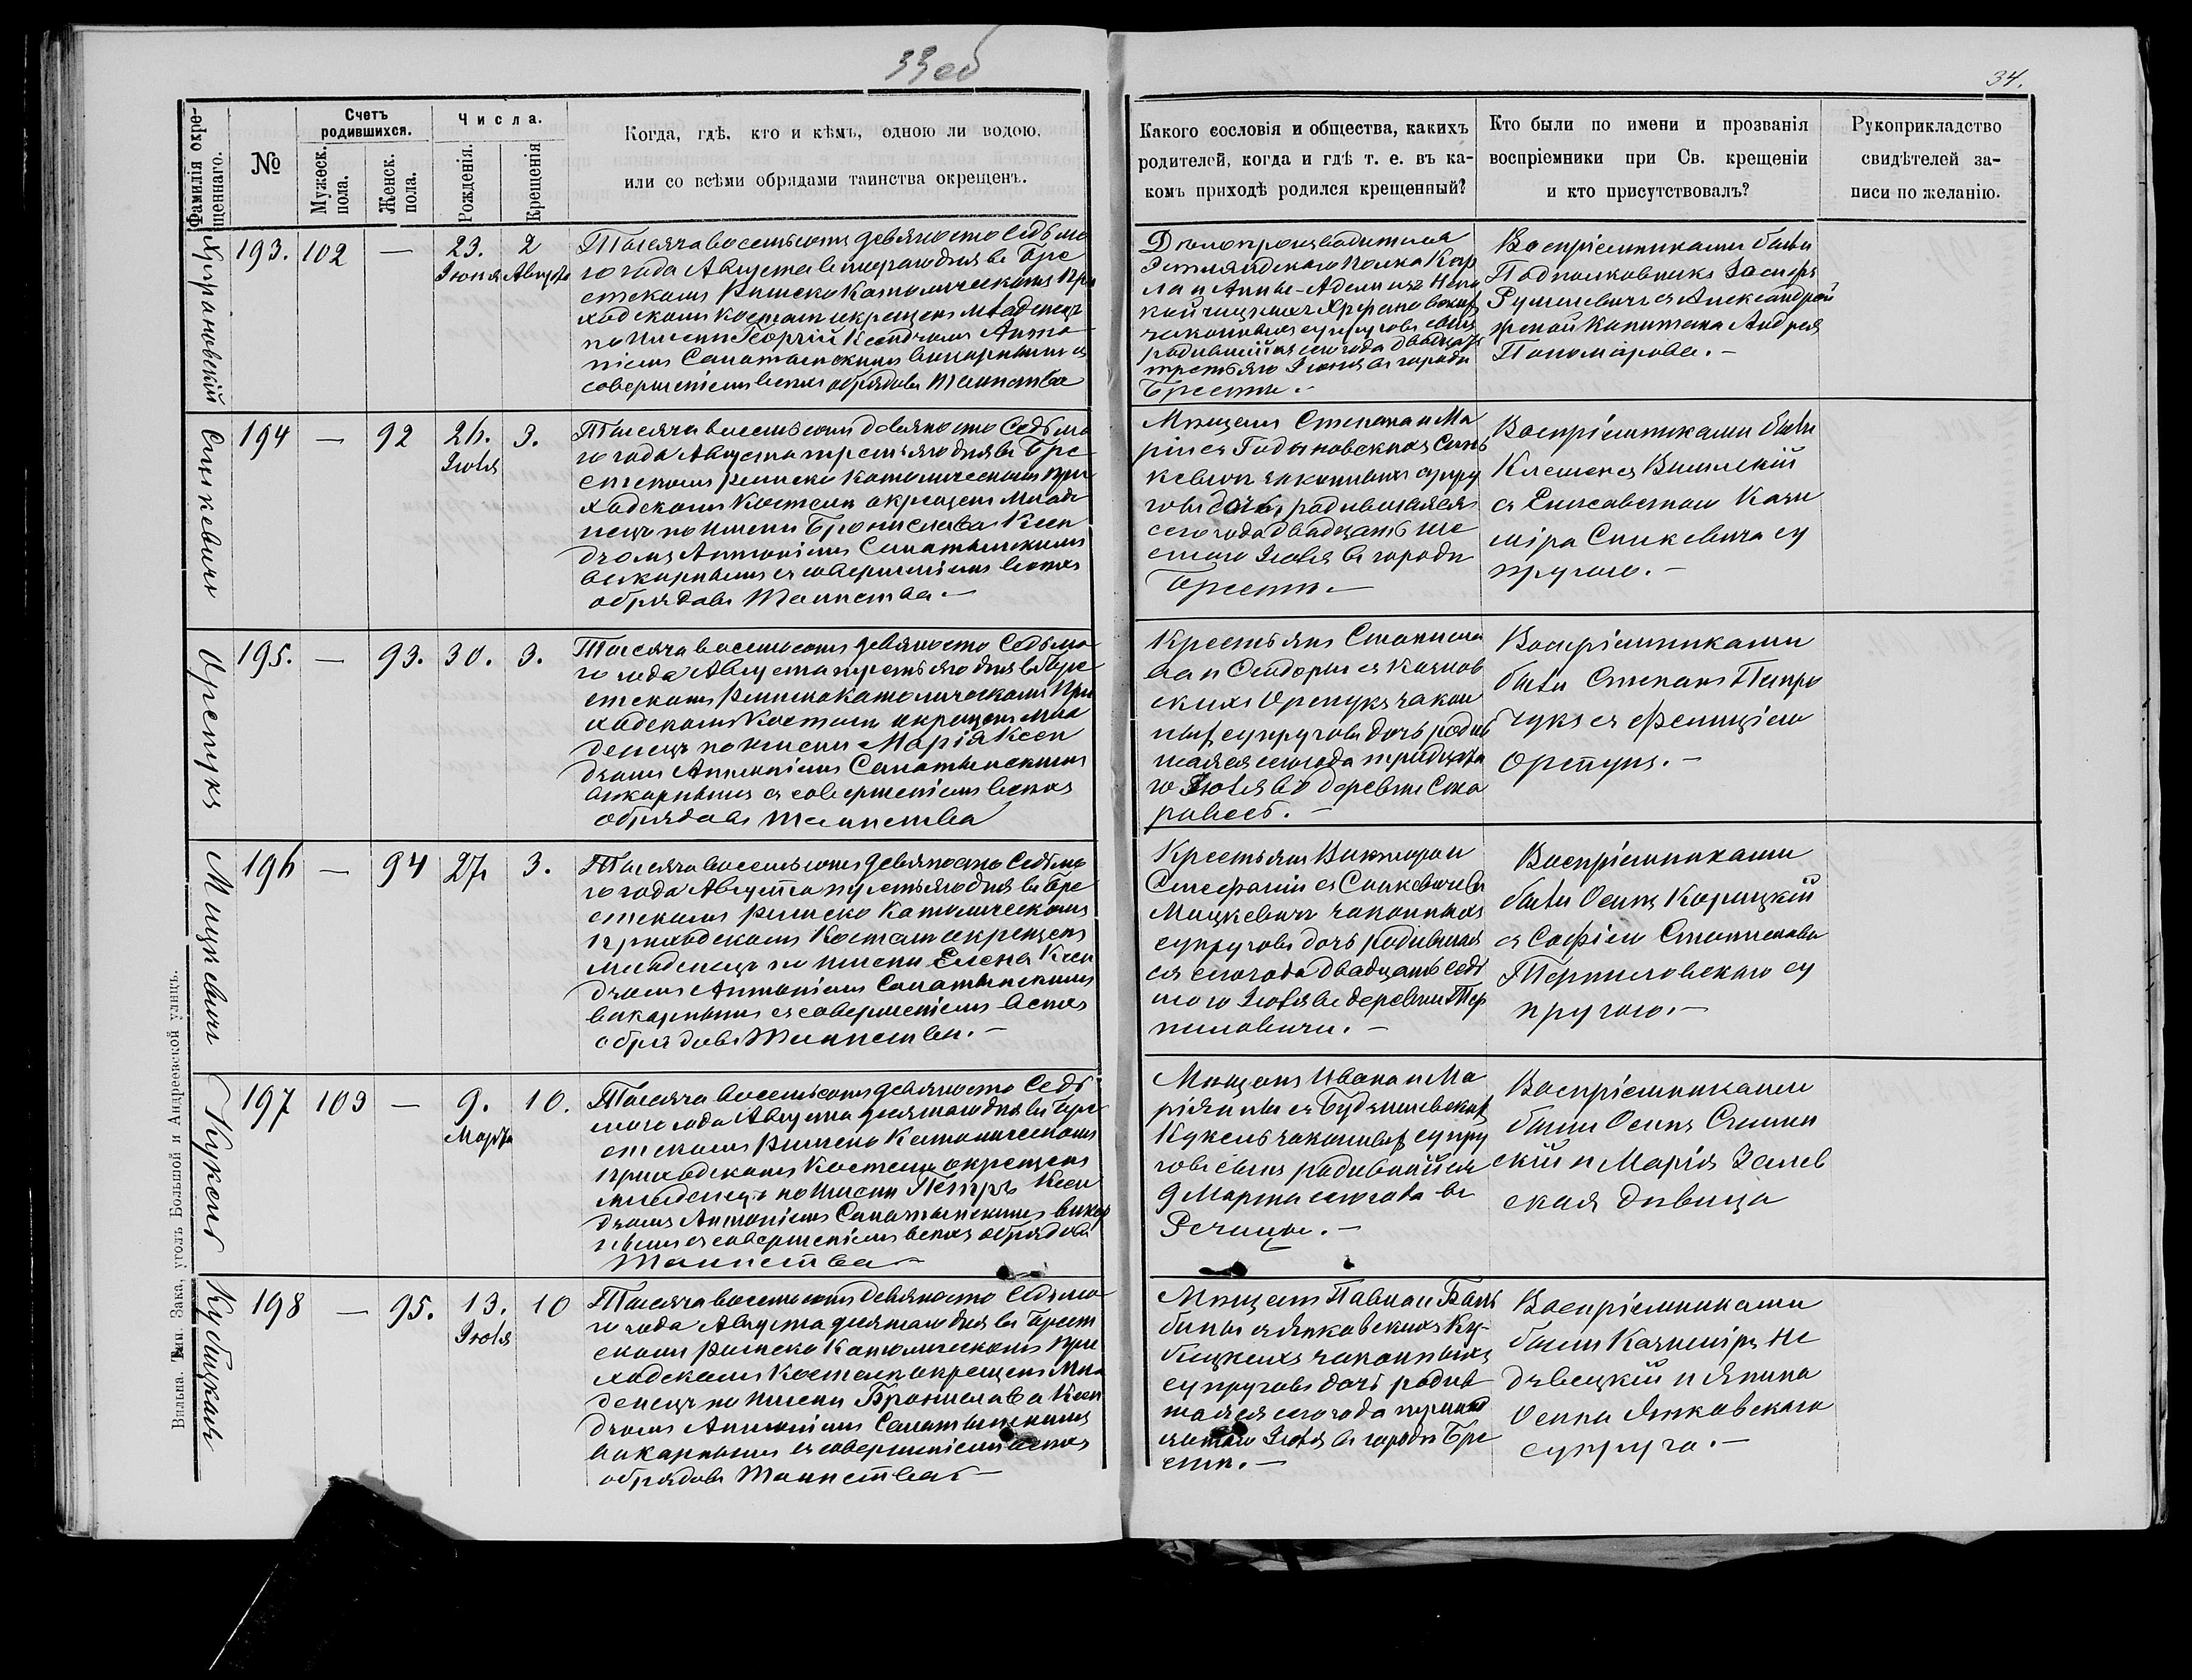 33об
34.
Фамилія окре-
щеннаго.
№
Счетъ
родившихся.
Мужеск.
пола.
Женск.
пола.
Числа.
Рожденія.
Крещенія
Когда, гдѣ, кто и кѣмъ, одною ли водою,
или со всѣми обрядами таинства окрещенъ.
Какого сословія и общества, какихъ
родителей, когда и гдѣ т. е. въ ка-
комъ приходѣ родился крещенный?
Кто были по имени и прозванія
воспріемники при Св. крещеніи
и кто присутствовалъ?
Рукоприкладство
свидѣтелей за-
писи по желанію.
193. 102 — 23. 2
Іюня Августа
Тысяча восемьсотъ девяносто седьма
го года Августа втораго дня въ Бре
стскомъ Римско Католическомъ При
ходскомъ костелѣ окрещенъ младенецъ
по имени Георгій Ксендзомъ Анто
ніемъ
викарнымъ съ
совершеніемъ всѣхъ обрядовъ Таинства
Дѣлопроизводителя
полка Кар
ла и Анны-
законныхъ супруговъ сынъ
родившійся сего года двадцать
третьяго Іюня въ городѣ
Брестѣ.-
Воспріемниками были
Подполковникъ
съ Александрой
женой Капитана Андрея
Пономарова.-
Сацкевичъ
194 — 92 26. 3.
Іюля
Тысяча восемьсотъ девяносто седьма
го года Августа третьяго дня въ Бре
стскомъ Римско Католическомъ При
ходскомъ Костелѣ окрещенъ Младе
нецъ по имени Бронислава Ксен
дзомъ Антоніемъ
викарнымъ съ совершеніемъ всѣхъ
обрядовъ Таинства.-
Мѣщанъ Степана и Ма
ріи съ
законныхъ супру
говъ дочь, родившаяся
сего года двадцать ше
стаго Іюля въ городѣ
Брестѣ.-
Воспріемниками были
съ Елисаветою Кази
міра Сацкевича су
пругою.-
Орепукъ
195. — 93. 30. 3.
Тысяча восемьсотъ девяносто седьма
го года Августа третьяго дня въ Бре
стскомъ Римско Католическомъ При
ходскомъ Костелѣ окрещенъ Мла
денецъ по имени Марія Ксен
дзомъ Антоніемъ
викарнымъ съ совершеніемъ всѣхъ
обрядовъ Таинства
Крестьянъ Станисла
ва и
Орепукъ закон
ныхъ супруговъ дочь родив
шаяся сего года тридцата
го Іюля въ деревнѣ
Воспріемниками
были Степанъ Петро
чукъ съ Фелиціею
Орепукъ.-
Мицкевичъ
196 — 94 27. 3.
Тысяча восемьсотъ девяносто седьма
го года Августа третьяго дня въ Бре
стскомъ Римско Католическомъ
Приходскомъ Костелѣ окрещенъ
младенецъ по имени Елена Ксен
дзомъ Антоніемъ
викарнымъ съ совершеніемъ всѣхъ
обрядовъ Таинства.-
Крестьянъ Виктора и
Стефаніи съ
Мицкевичъ законныхъ
супруговъ дочь родившая
ся сего года двадцать седь
маго Іюля въ деревнѣ Тер
пиловичи.-
Воспріемниками
были Осипъ Корицкій
съ Софіею Станислава
Терпиловскаго су
пругою.-
Кукель
197 103 — 9. 10.
Марта
Тысяча восемьсотъ девяносто седь
маго года Августа десятаго дня въ Бре
стскомъ Римско Католическомъ
Приходскомъ Костелѣ окрещенъ
младенецъ по имени Петръ Ксен
дзомъ Антоніемъ викар
нымъ съ совершеніемъ всѣхъ обрядовъ
Таинства
Мѣщанъ Ивана и Ма
ріянны съ
Кукель законныхъ супру
говъ сынъ родившійся
9 Марта сего года въ
Речицѣ.-
Воспріемниками
были Осипъ
и Марія Залев
ская дѣвица
Кубицкая
198 — 95. 13. 10
Іюля
Тысяча восемьсотъ девяносто седьма
го года Августа десятаго дня въ Брест
скомъ Римско Католическомъ При
ходскомъ Костелѣ окрещенъ Мла
денецъ по имени Бронислава Ксен
дзомъ Антоніемъ
викарнымъ съ совершеніемъ всѣхъ
обрядовъ Таинства.-
Мѣщанъ Павла и Баль
бины съ Янковскихъ Ку-
бицкихъ законныхъ
супруговъ дочь родив
шаяся сего года тринад
цатаго Іюля въ городѣ Бре
стѣ.-
Воспріемниками
были Казиміръ Не
дзвецкій и Янина
Осипа Янковскаго
супруга.-
Вильна. Тип. Зака, уголъ Большой и Андреевской улицъ.